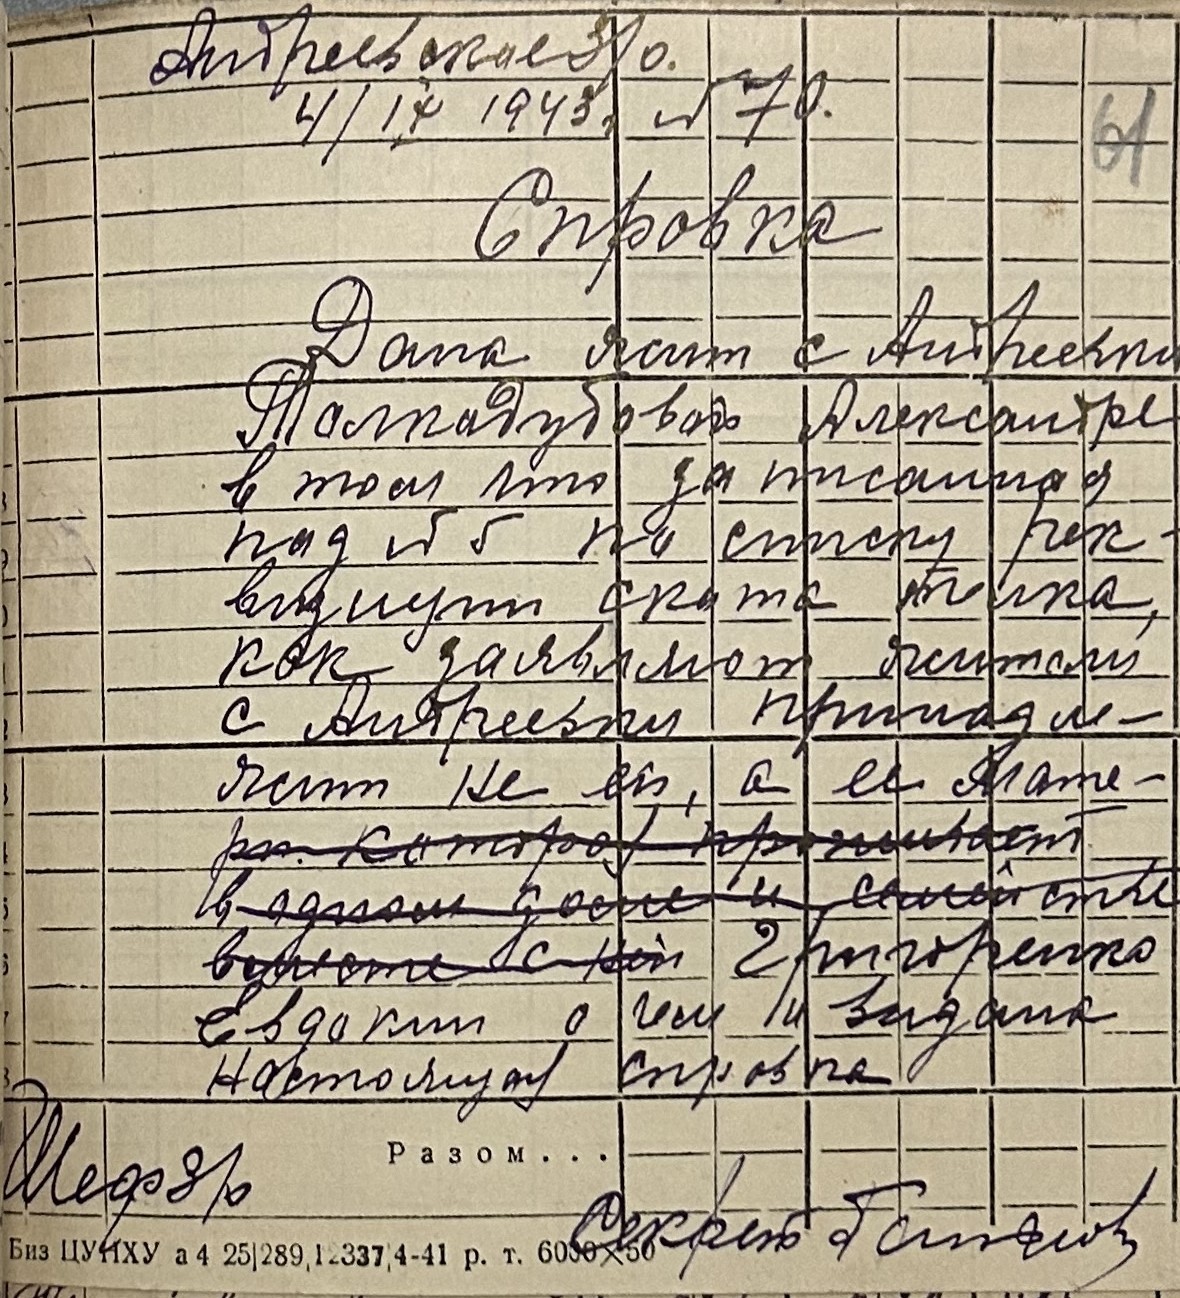 Андреевское З/о.
4/IX 1943. № 70.
61
Справка
Дана жит с Андреевки
Толкадубовой Александре
в том что записанная
под № 5 по списку рек-
визиции скота телка,
как заявляют жители
с Андреевки принадле-
жит не ей, а ее мате-
ри. которая проживает
в одном доме и семействе
вместе с ней Григоренко
Евдокии о чем и видана
настоящая справка
Разом...
Шеф З/о
Секрет
Биз ЦУНХУ а 4 25|289,12337,4-41 р. т. 6000×50